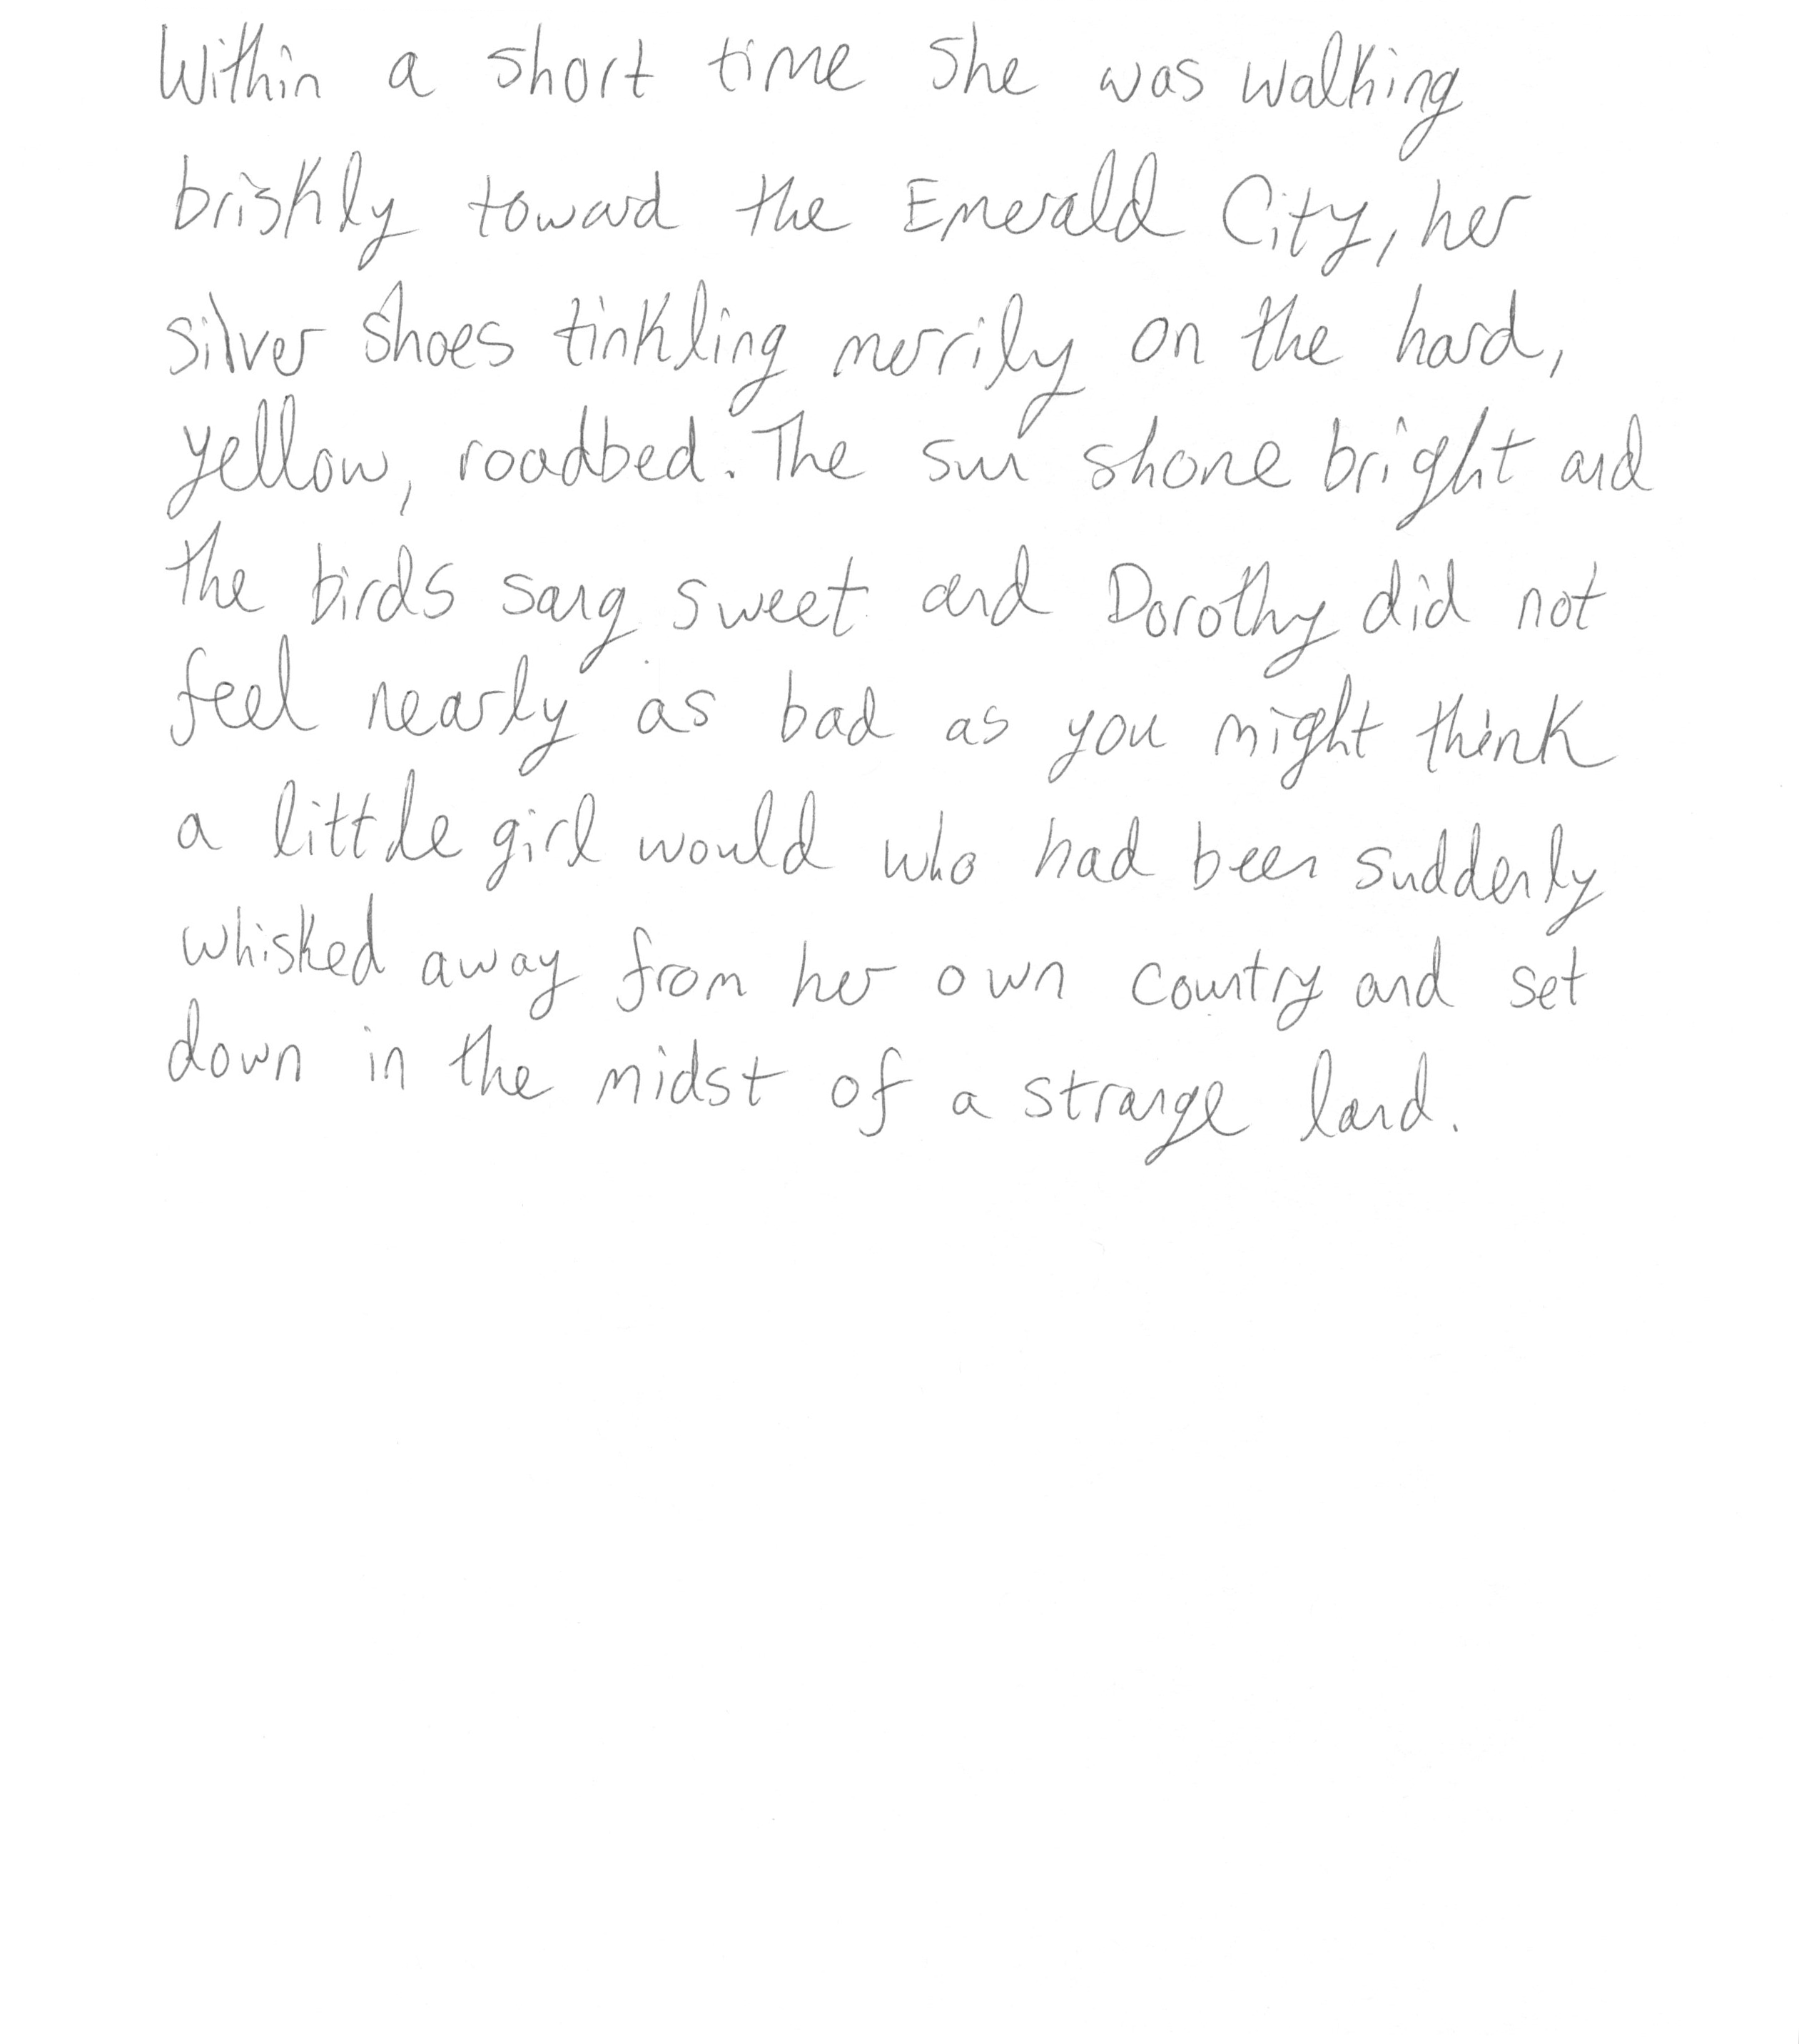 Within a short time she was walking
briskly toward the Emerald City, her
silver shoes tinkling merrily on the hard,
yellow, roadbed. The sun shone bright and
the birds sang sweet and Dorothy did not
feel nearly as bad as you might think
a little girl would who had been suddenly
whisked away from her own country and set
down in the midst of a strange land.